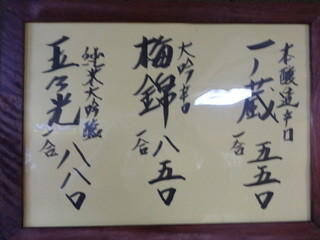 本醸造辛口
一ノ蔵 一合 五五〇
大吟辛口
梅錦 一合 八五〇
純米大吟醸
五々光 一合 八八〇